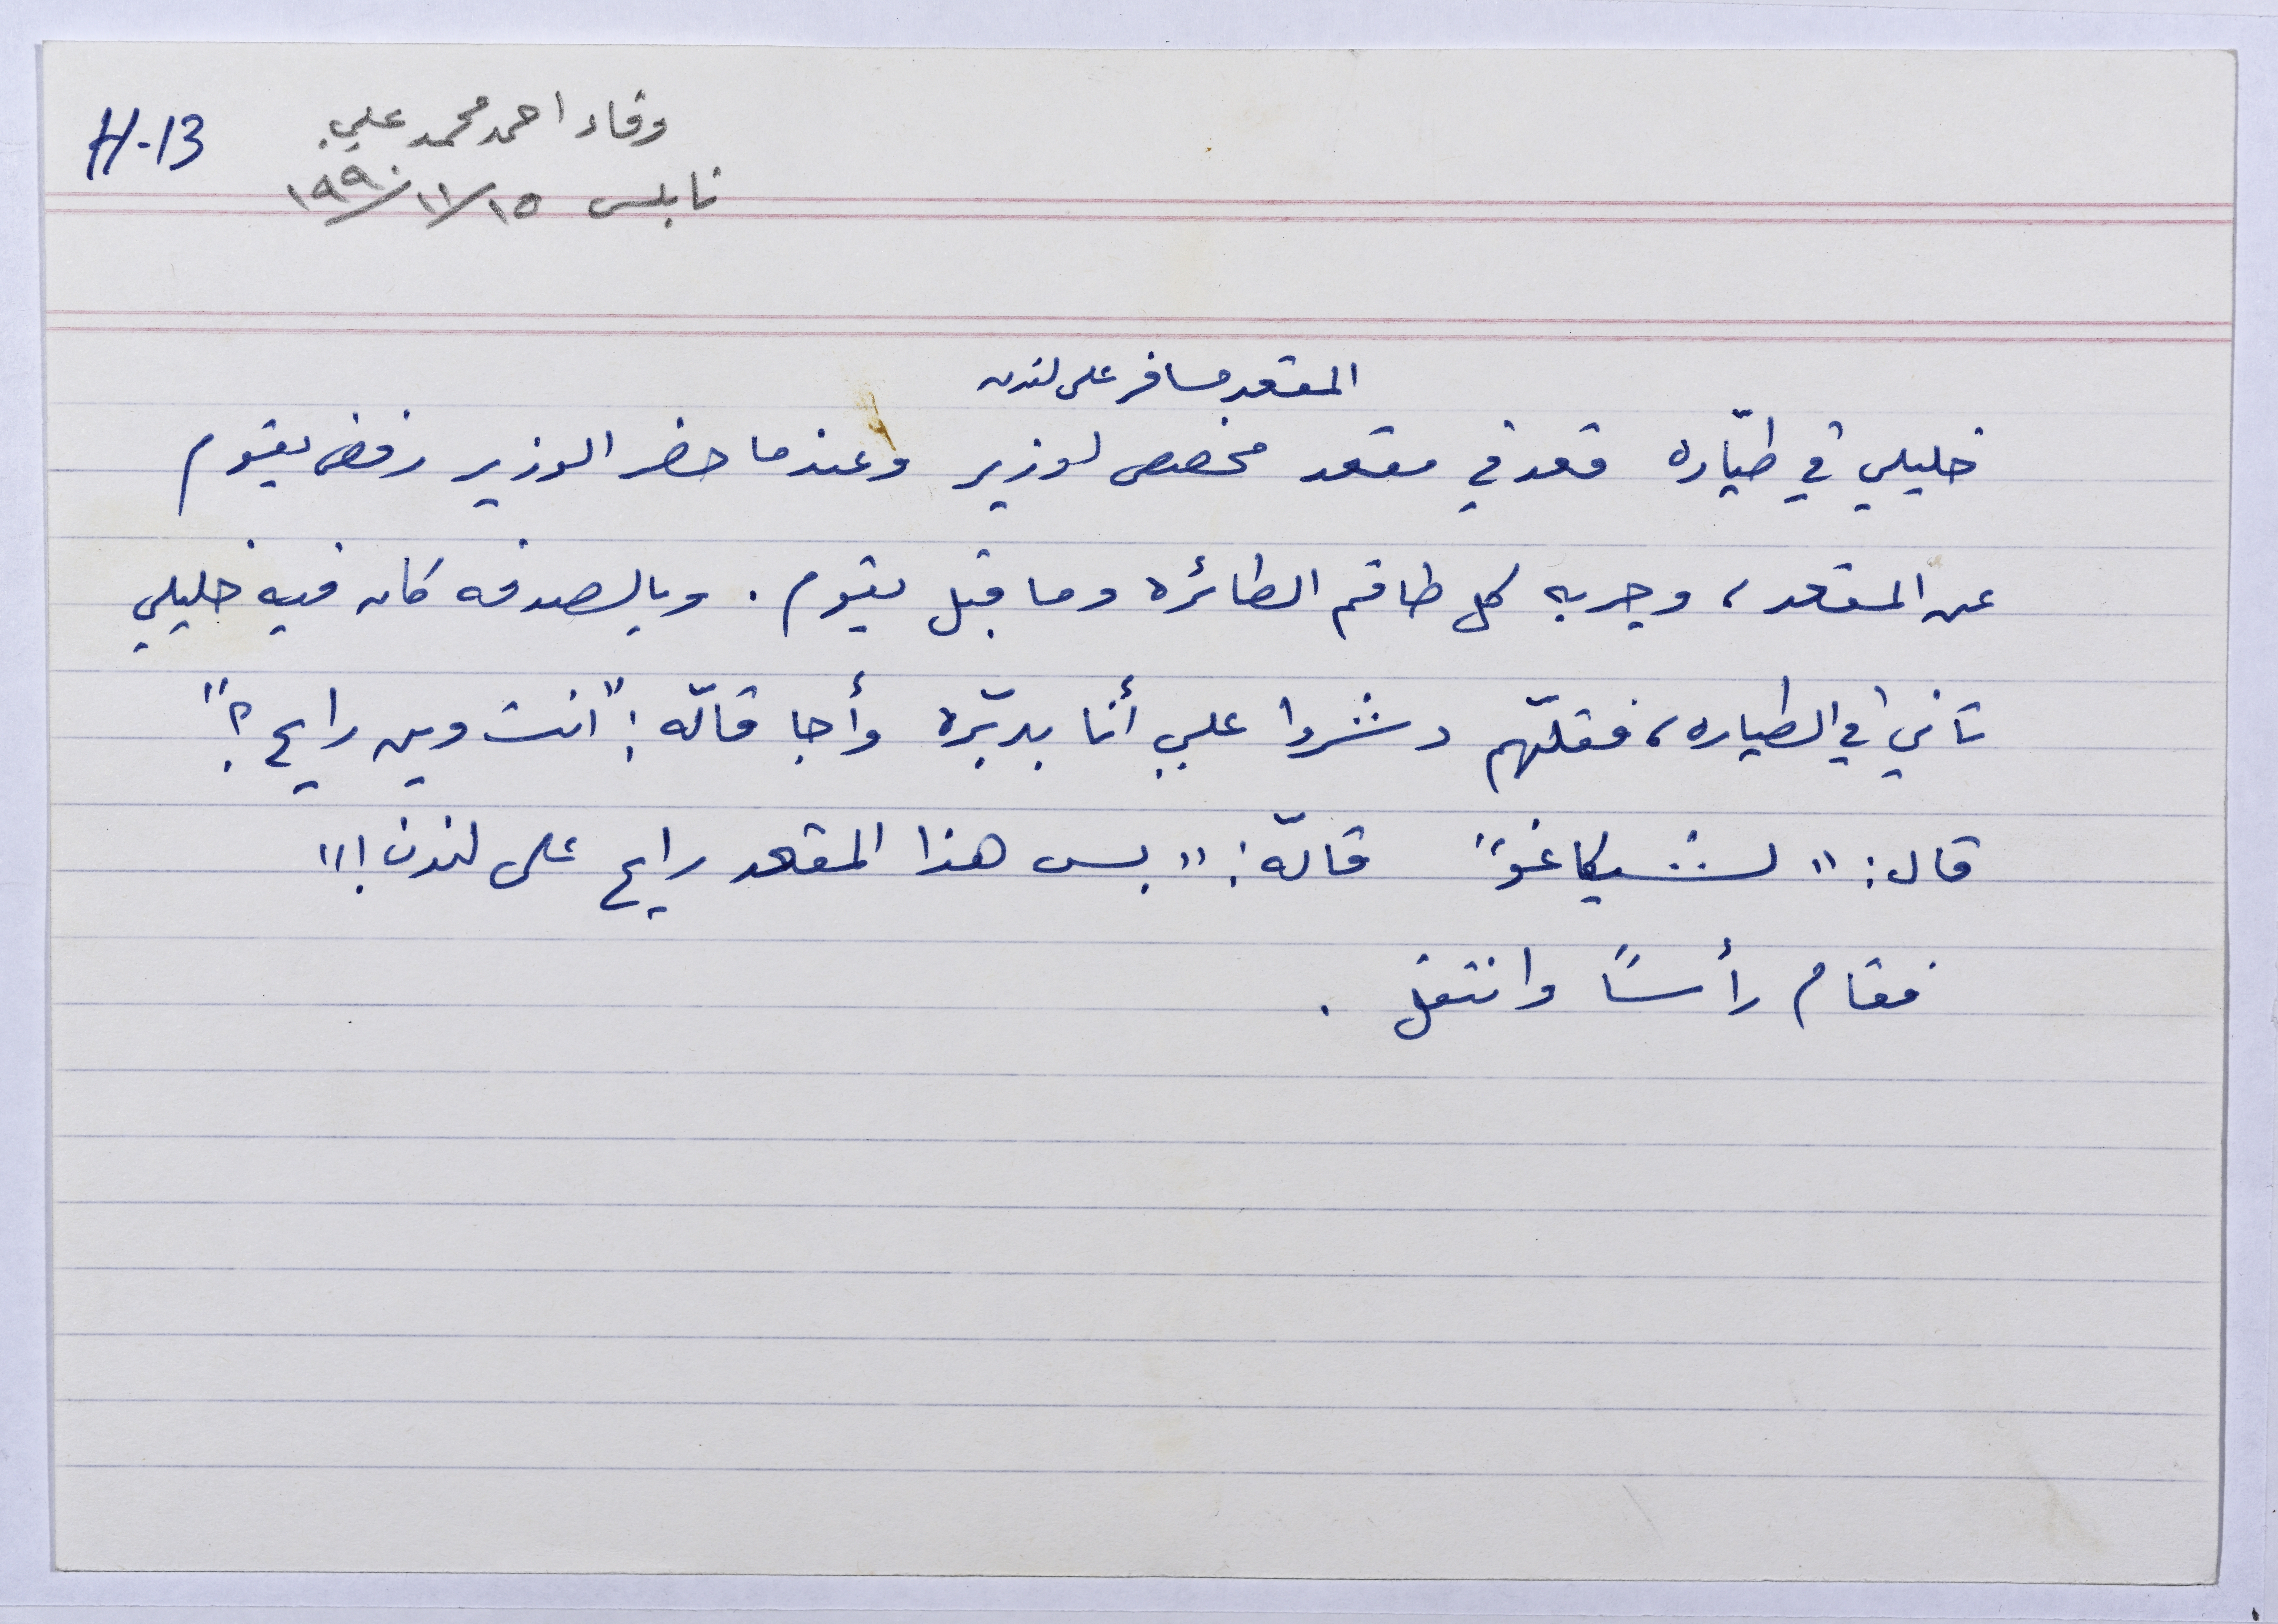 H-13
وفاء احمد محمد علي
نابلس ١٩٩٠/١١/١٥
المقعد مسافر على لندن
خليلي في طيّاره قعد في مقعد مخصص لوزير وعندما حضر الوزير رفض يقوم
عن المقعد، وجربه كل طاقم الطائره وما قبل يقوم. وبالصدفه كان فيه خليلي
تاني في الطياره، فقلّهم دشروا علي أنا بدبّره وأجا قالّه: "انت وين رايح؟"
قال: "لشيكاغو" قالّه: "بس هذا المقعد رايح على لندن!"
فقام رأسًا وانتقل.